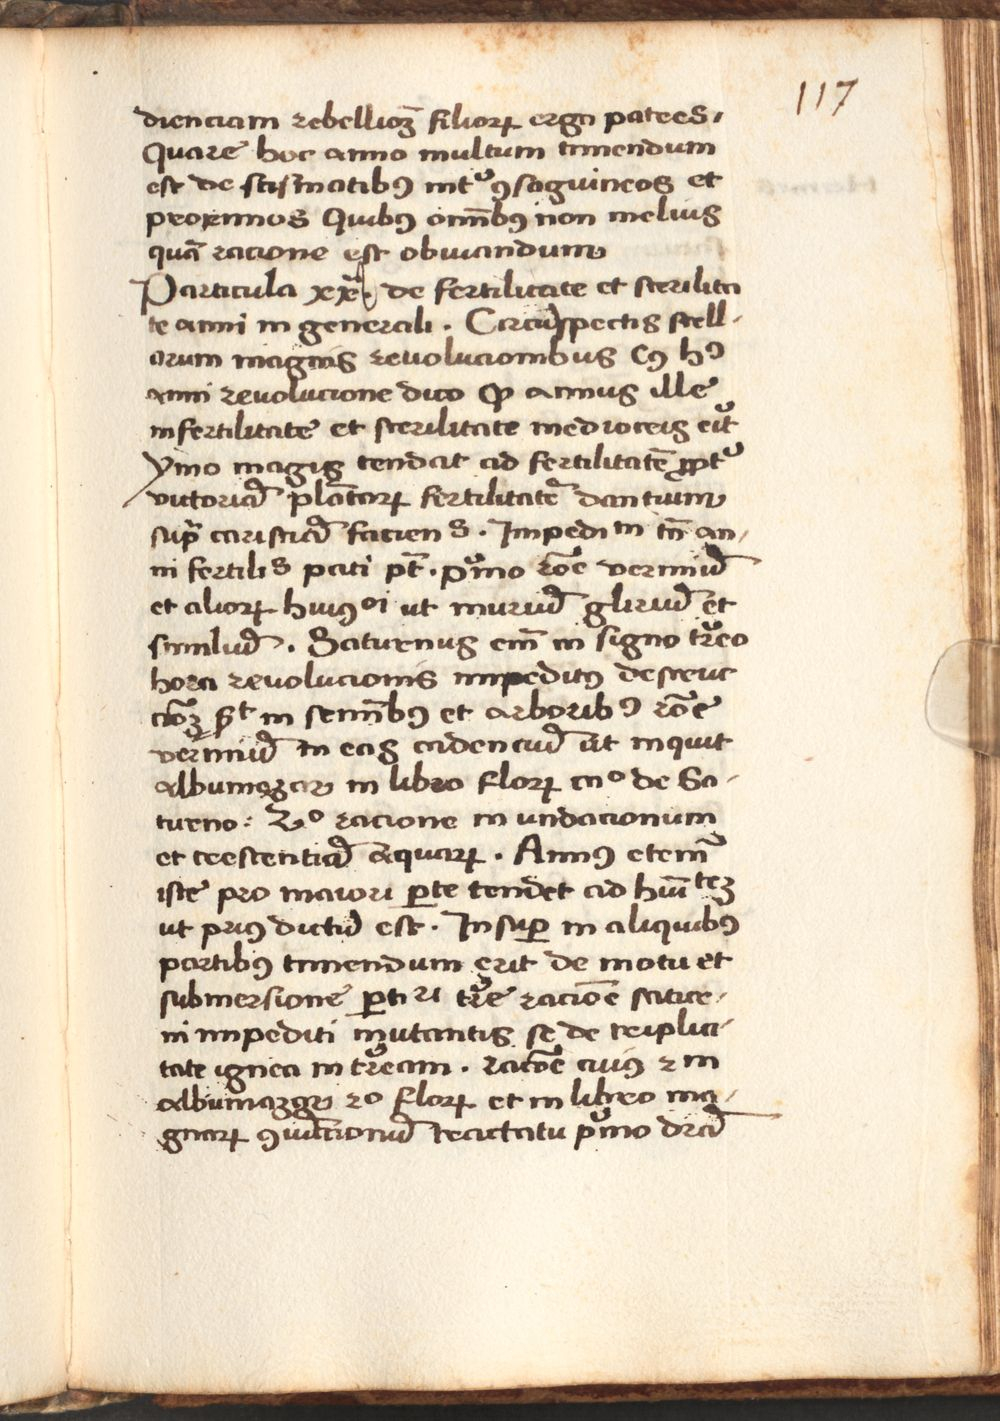 117
dienciam rebellioꝫ filioꝝ erga patres.
Quare hoc anno multum timendum
est de scismatibꝰ int̉ ꝯsāguineos et
proximos Quibꝰ om̄bꝰ non melius
quā racione est obuiandum
Particula xxᵃ. de fertilitate et sterilita
te anni in generali. Circūspectis stell-
orum magnis reuolucionibus cū hꝰ
anni reuolucione dico ꝙ annus ille
in fertilitate et sterilitate mediocris erit
ymo magis tendat ad fertilitatē ꝓpt̉
victoriā planetaꝝ fertilitatē dantium
supra caristiā faciens. Impedimᵐ tn̄ an-
ni fertilis pati pt̄. pͥmo rōe vermiū
et alioꝝ huiꝰᵒⁱ ut muriū gliriū et
similiū. Saturnus em̄ in signo tr̄eo
hora reuolucionis impeditꝰ destruc
cioꝫ sᵗ in semībꝰ et arboribꝰ rōe
vermiū in eas cadenciū ut inquit
albumazar in libro floꝝ cᵃ2º de Sa-
turno: 2º racione inundacionum
et crescentiā aquaꝝ. Annꝰ etem̄
iste pro maiori ꝑte tendet ad hūitēꝫ
ut priꝰ dictū est. Insuꝑ in aliquibꝰ
partibꝰ timendum erit de motu et
submersione ꝑtiū tr̄e racōe satur-
ni impediti mutantis se de triplici-
tate ignea in tr̄eam. racōe cuiꝰ 2m
albumazar 2º floꝝ et in libro ma-
gnaꝝ ꝯiūccionū tractatu pͥmo dr̄ā